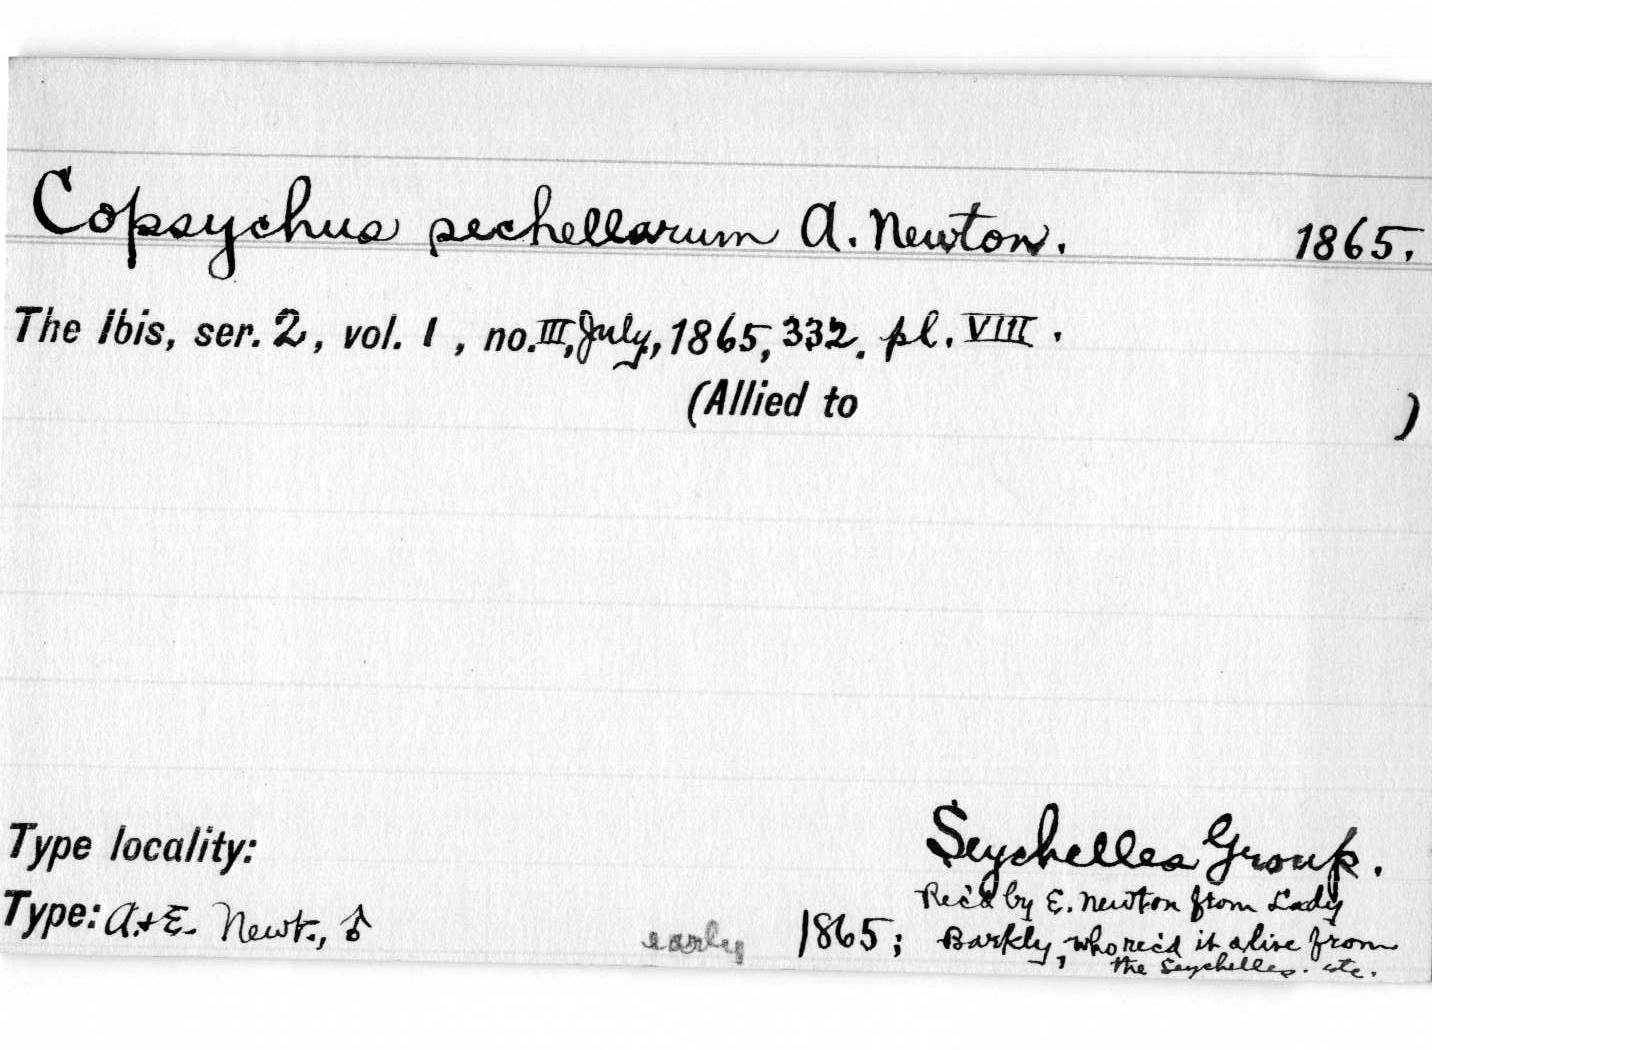 Copsychus sechellarum A. Newton. 1865.
The Ibis, ser. 2, vol. 1, no. III, July, 1865, 332. pl. VIII.
(Allied to )
Type locality: Seychelles Group.
Rec'd by E. Newton from Lady
Type: A. + E. Newt., ♂ early 1865; Barkly, who rec'd it alive from
the Seychelles. etc.